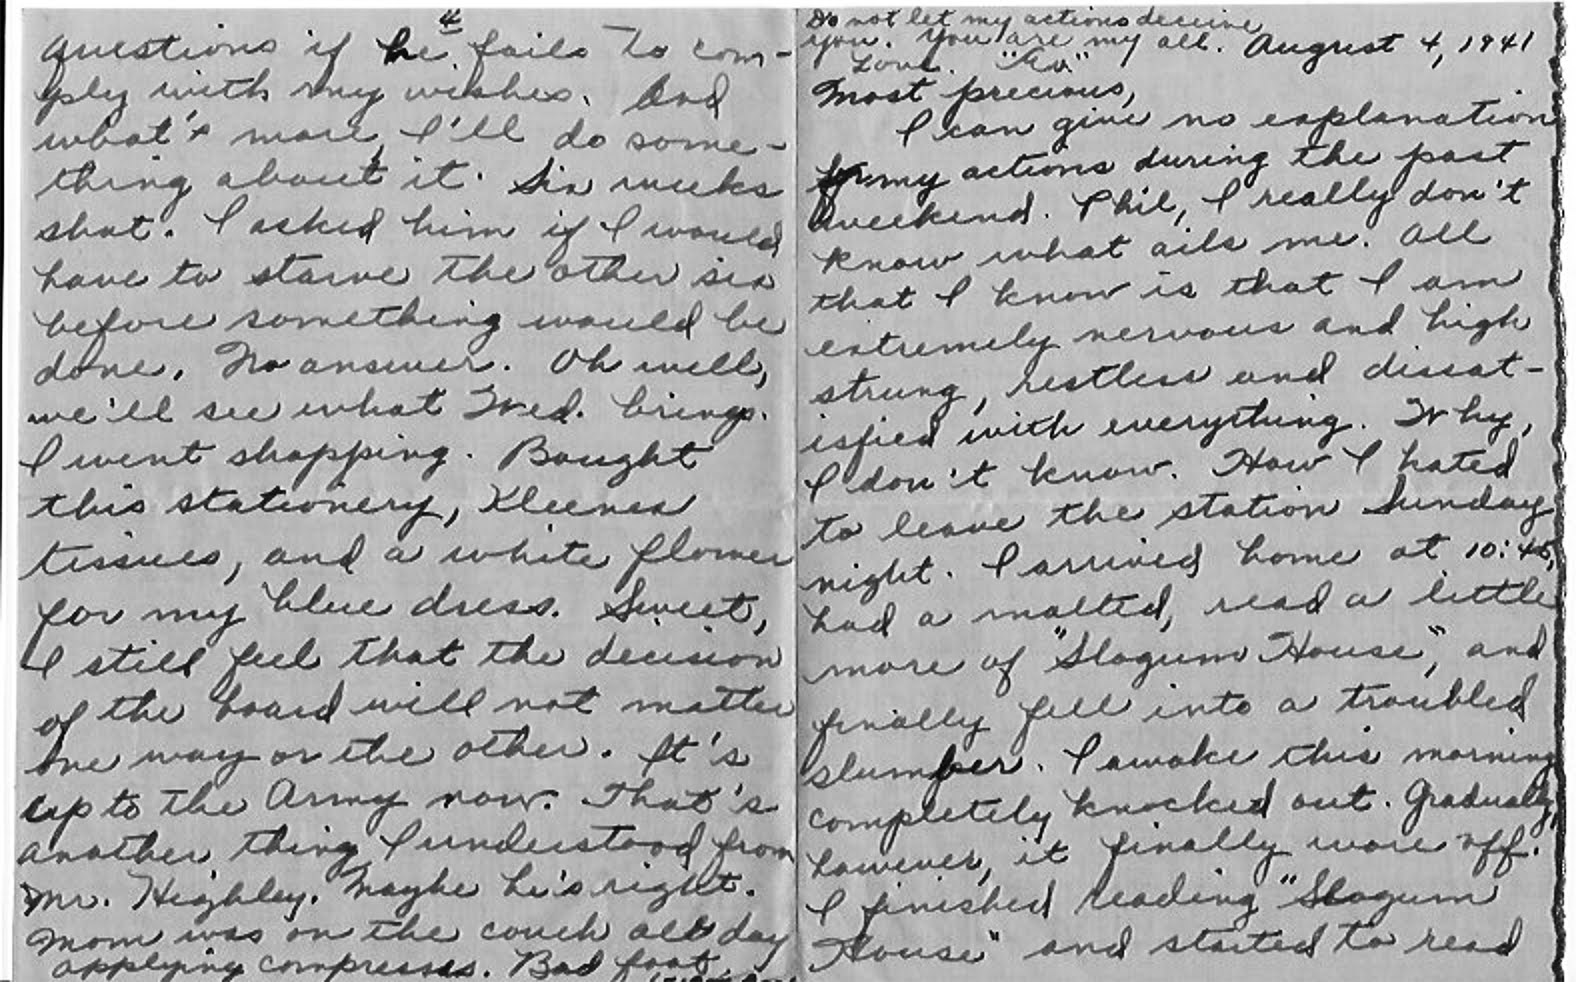 4
questions if he fails to com-
ply with my wishes. And
what's more, I'll do some-
thing about it. Six weeks
shot. I asked him if I would
have to starve the other six
before something would be
done. No answer. Oh well,
we'll see what Wed. brings.
I went shopping. Bought
this stationery, Kleenex
tissues, and a white flower
for my blue dress. Sweet,
I still feel that the decision
of the board will not matter
one way or the other. It's
up to the Army now. That's
another thing I understood from
Mr. Highley. Maybe he's right.
Mom was on the couch all day
applying compresses. Bad foot.
Do not let my actions deceive
you. You are my all.
Love. "Ev."
August 4, 1941
Most precious,
I can give no explanation
for my actions during the past
weekend. Phil, I really don't
know what ails me. All
that I know is that I am
extremely nervous and high
strung, restless and dissat-
isfied with everything. Why,
I don't know. How I hated
to leave the station Sunday
night. I arrived home at 10:45,
had a malted, read a little
more of "Slogum House", and
finally fell into a troubled
slumber. I awoke this morning
completely knocked out. Gradually,
however, it finally wore off.
I finished reading "Slogum
House" and started to read